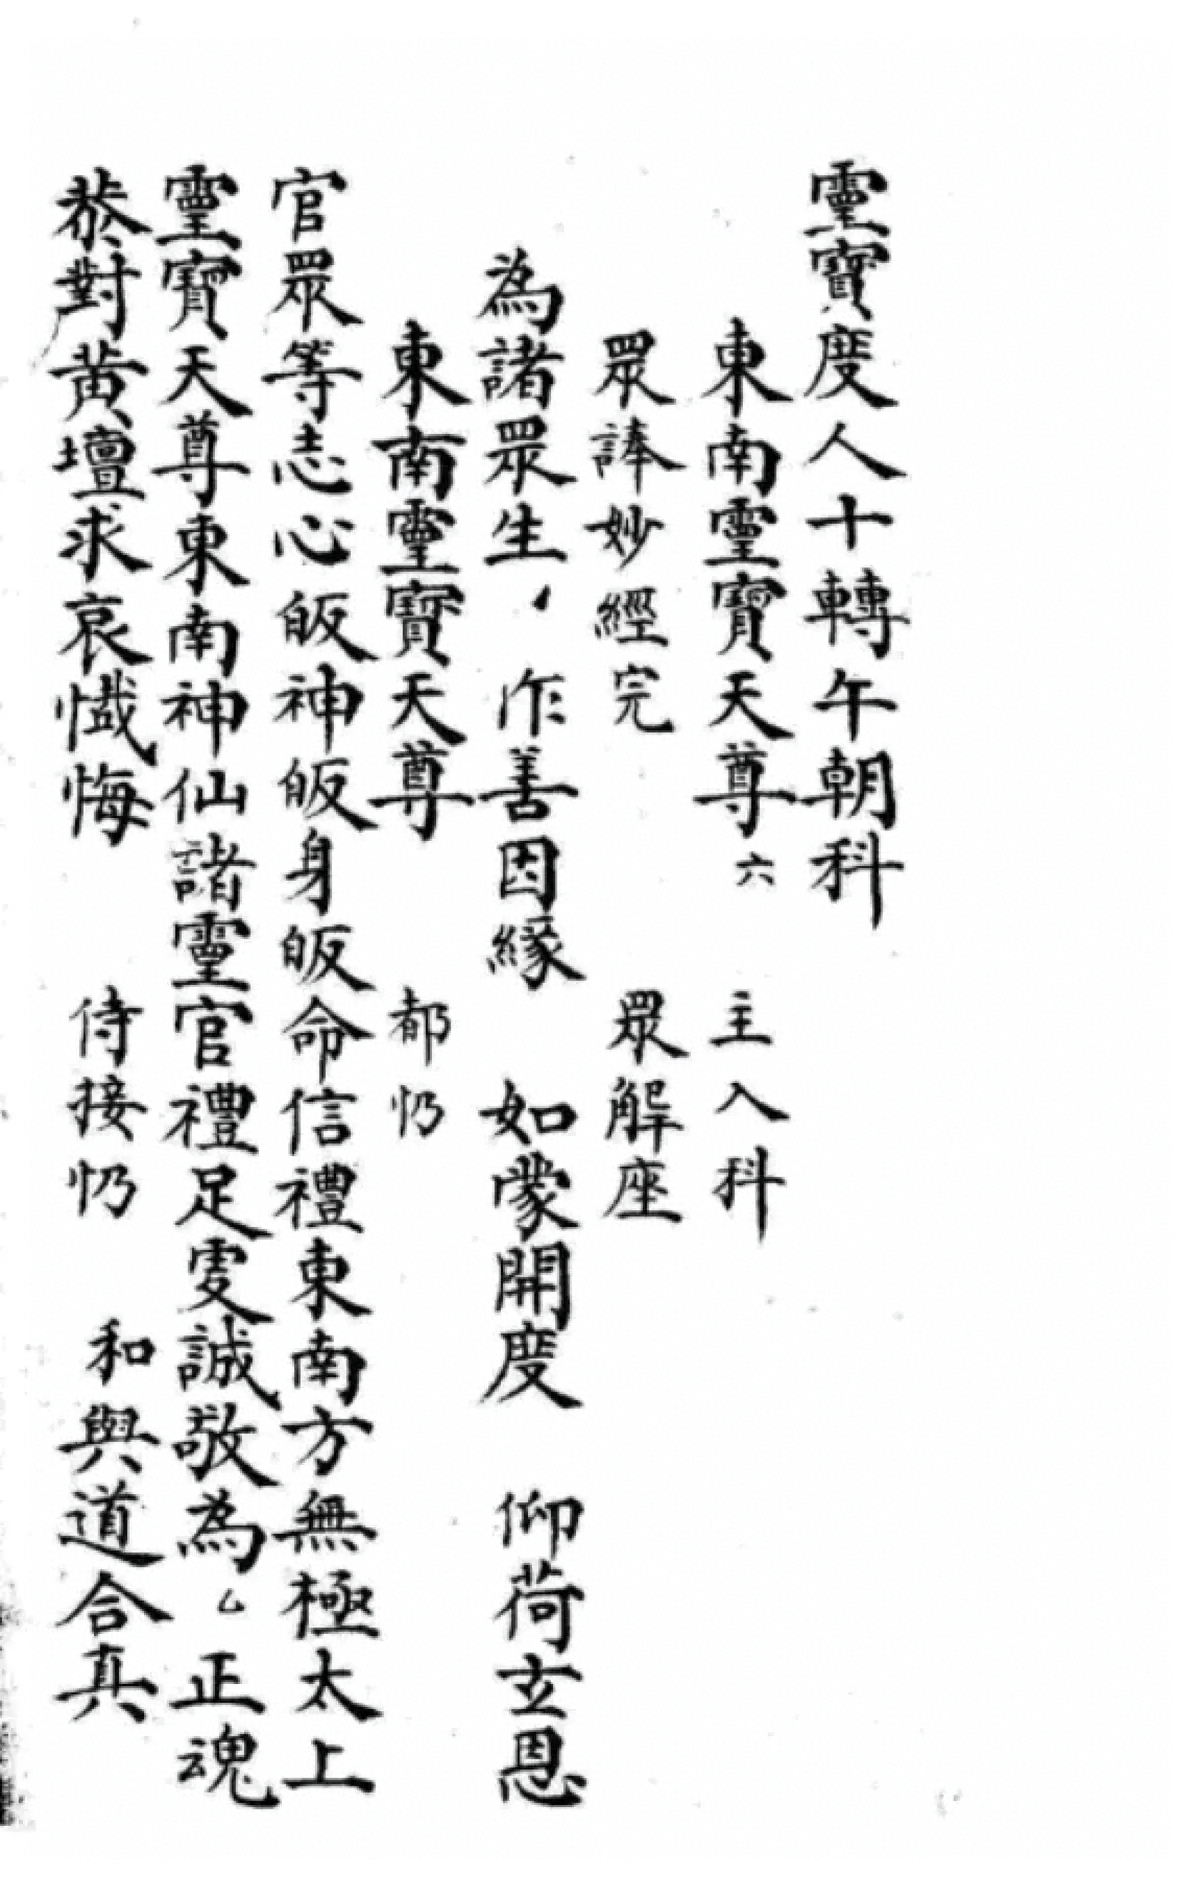 靈寶度人十轉午朝科
東南靈寶天尊六 主入科
眾誦妙經完 眾解座
為諸眾生、作善因緣 如蒙開度 仰荷玄恩
東南靈寶天尊 都忉
官眾等志心皈神皈身皈命信禮東南方無極太上
靈寶天尊東南神仙諸靈官禮足虔誠敬為厶正魂
恭對黃壇求哀懺悔 侍接忉 和與道合真